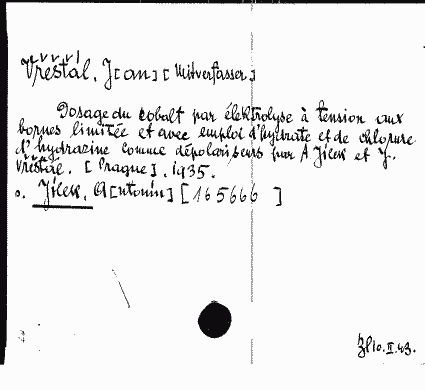 Vřešťál, J[an] [Mitverfasser]
Dosage du cobalt par élektrolyse à tension aux
bornes limitée et avec emploi d'hydrate et de chlorure
d'hydrazine comme dépolariseurs par A. Jílek et J.
Vřešťál. [Prague]. 1935.
o. Jílek, A[ntonín] [165666 ]
10.II.43.